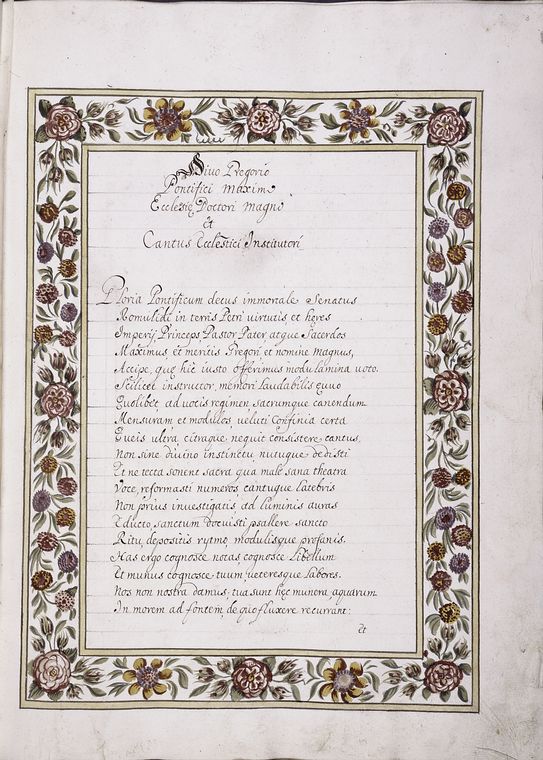 Divo Gregorio
Pontifici Maximo
Ecclesię Doctori Magno
et
Cantus Ecclesiastici Institutori
Gloria Pontificum decus immortale Senatus
Romulidi in terris Petri virtutis, et heres
Imperij Princeps, Pastor Pater, atque Sacerdos
Maximus, et meritis Gregori et nomine Magnus,
Accipe, quę hic iusto offerimus modulamina voto.
Scilicet instructor, memori laudabilis ęuo
Quolibet ad vocis regimen, sacrumque canendum
Mensuram et modulos, veluti Confinia certa
Queis ultra, citraque nequit consistere cantus,
Non sine divino instinctu nutuque dedisti
Et ne tecta sonent sacra, qua male sana theatra
Voce, reformasti numeros, cantuque latebris
Non prius investigatis, ad luminis auras
Educto, sanctum docuisti psallere sancto
Ritu, depositis rytmo modulisque profanis.
Has ergo cognosce notas, cognosce Libellum
Et munus cognosce tuum, veteresque labores.
Nos non nostra damus; tua sunt hęc munera, aquarum
In morem ad fontem, de quo fluxere recurrant:
Et